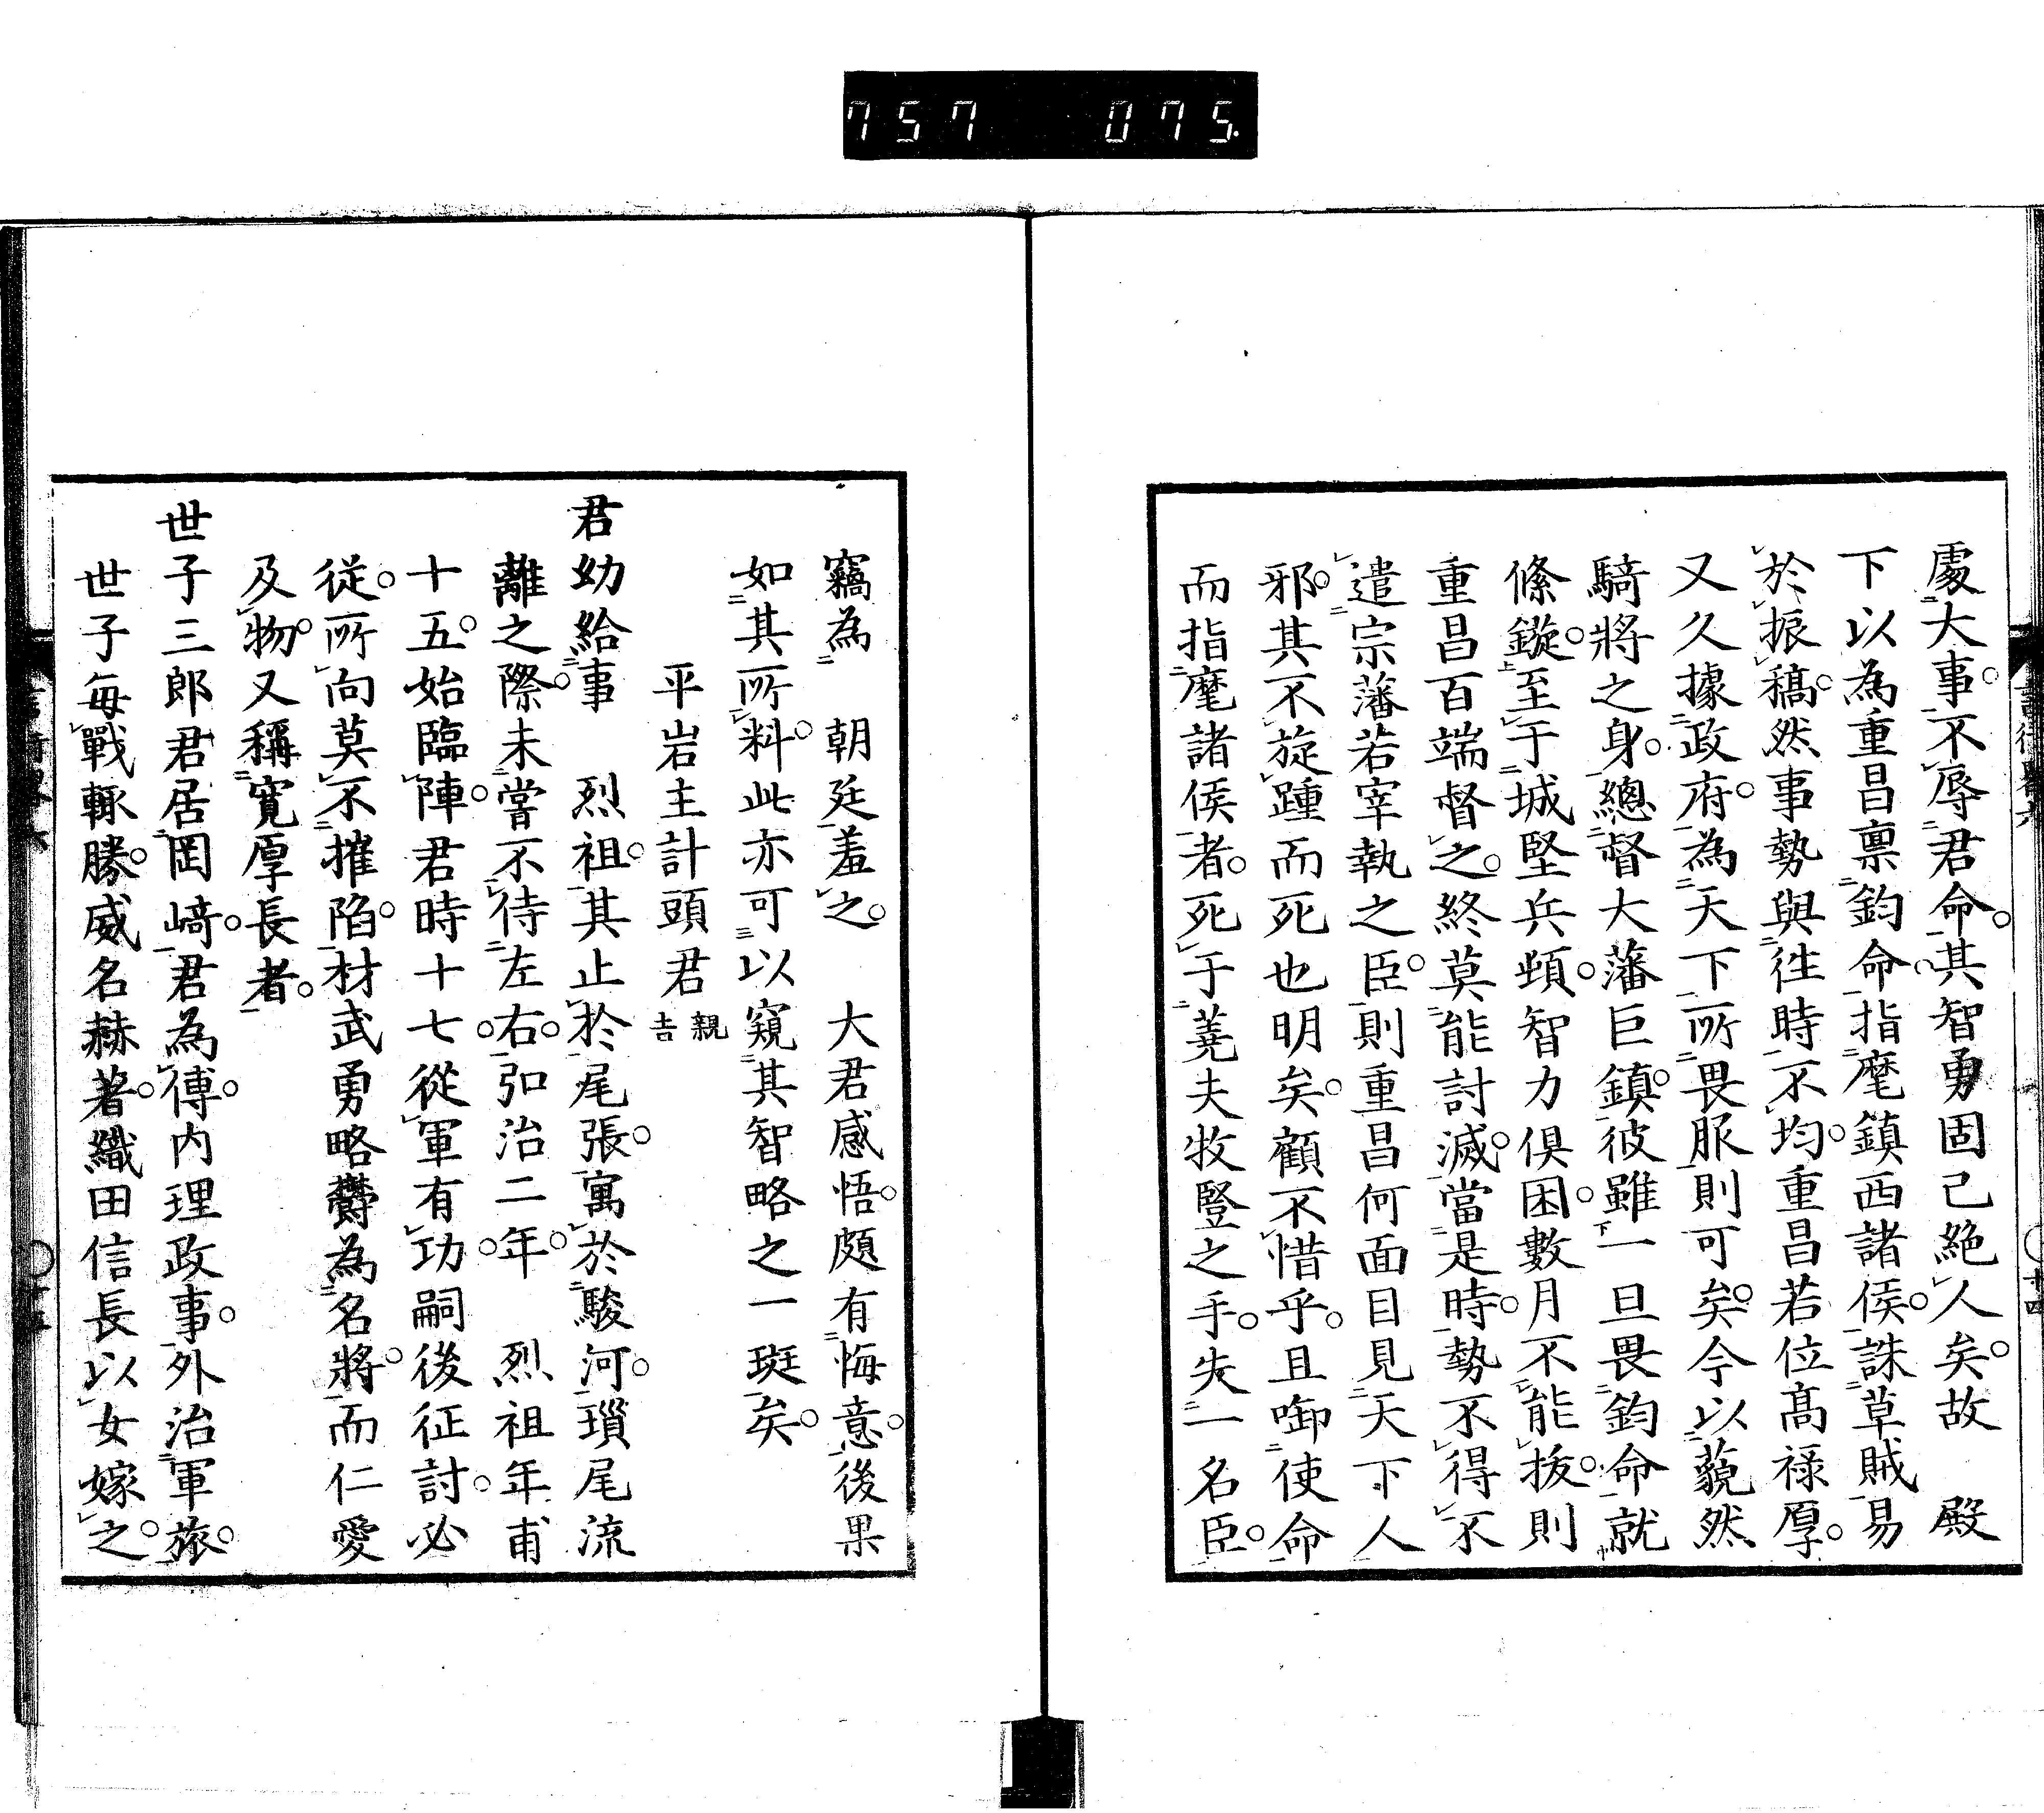 757 075
處大事。不辱君命。其智勇固已絶人矣。故 殿
下以為重昌稟鈞命。指麾鎮西諸侯。誅草賊易
於振稿。然事勢與徃時不均。重昌若位髙祿厚。
又久據政府。為天下所畏服則可矣。今以藐然
騎將之身。總督大藩巨鎮。彼雖一旦畏鈞命就
絛鏇。至于城堅兵頻。智力俱困。數月不能抜。則
重昌百端督之。終莫能討滅。當是時。勢不得不
遣宗藩若宰執之臣。則重昌何面目見天下人
邪。其不旋踵而死也明矣。顧不惜乎。且啣使命
而指麾諸侯者。死于蕘夫牧豎之手。失一名臣。
竊為 朝廷羞之。 大君感悟。頗有悔意。後果
如其所料。此亦可以窺其智略之一斑矣。
平岩主計頭君 親吉
君幼給事 烈祖。其止於尾張。寓於駿河。瑣尾流
離之際。未嘗不待左右。弘治二年。 烈祖年甫
十五。始臨陣。君時十七。從軍有功。嗣後征討。必
從。所向莫不摧陷。材武勇略欝為名將。而仁愛
及物。又稱寛厚長者。
世子三郎君居岡﨑。君為傅。内理政事。外治軍旅。
世子毎戰輙勝。威名赫著。織田信長以女嫁之。